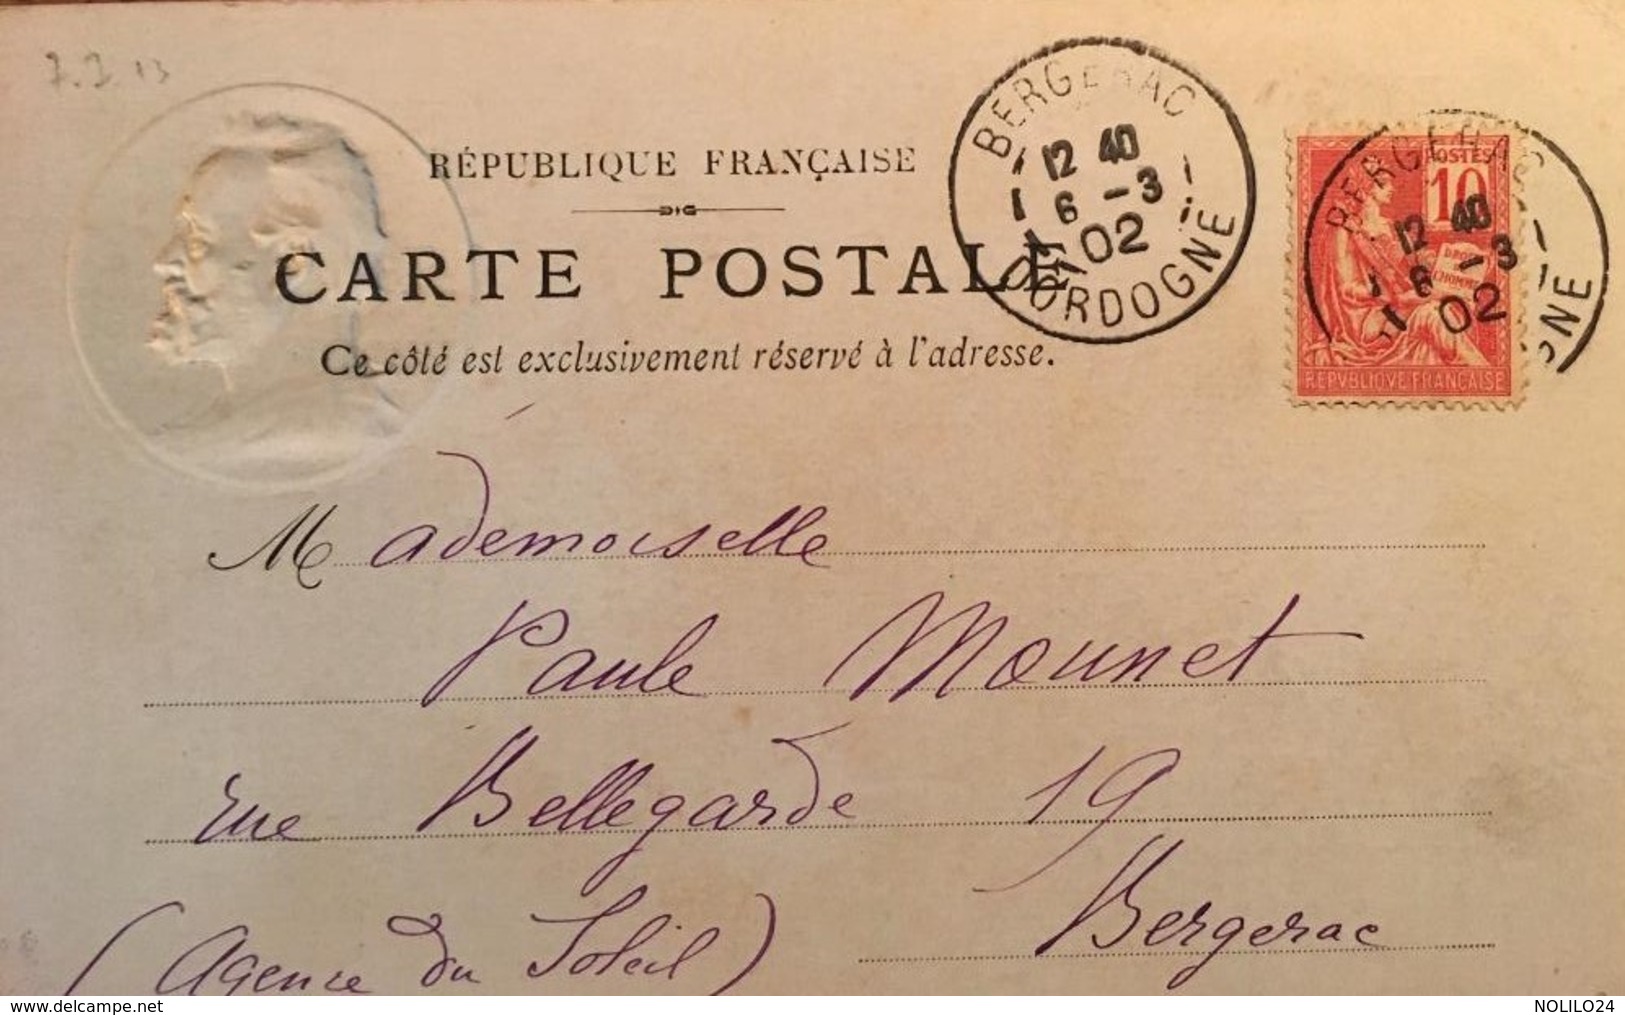 7.7.13
RÉPUBLIQUE FRANÇAISE
CARTE POSTALE
Ce côté est exclusivement réservé à l'adresse.
BERGERAC
12 40
6 -3
02
DORDOGNE
POSTES
10
DROITS DE L'HOMME
REPVBLIQVE FRANÇAISE
BERGERAC
12 40
6 -3
02
GNE
Mademoiselle
Paule Mounet
rue Bellegarde 19
Bergerac
(Agence du Soleil)
www.delcampe.net
NOLILO24